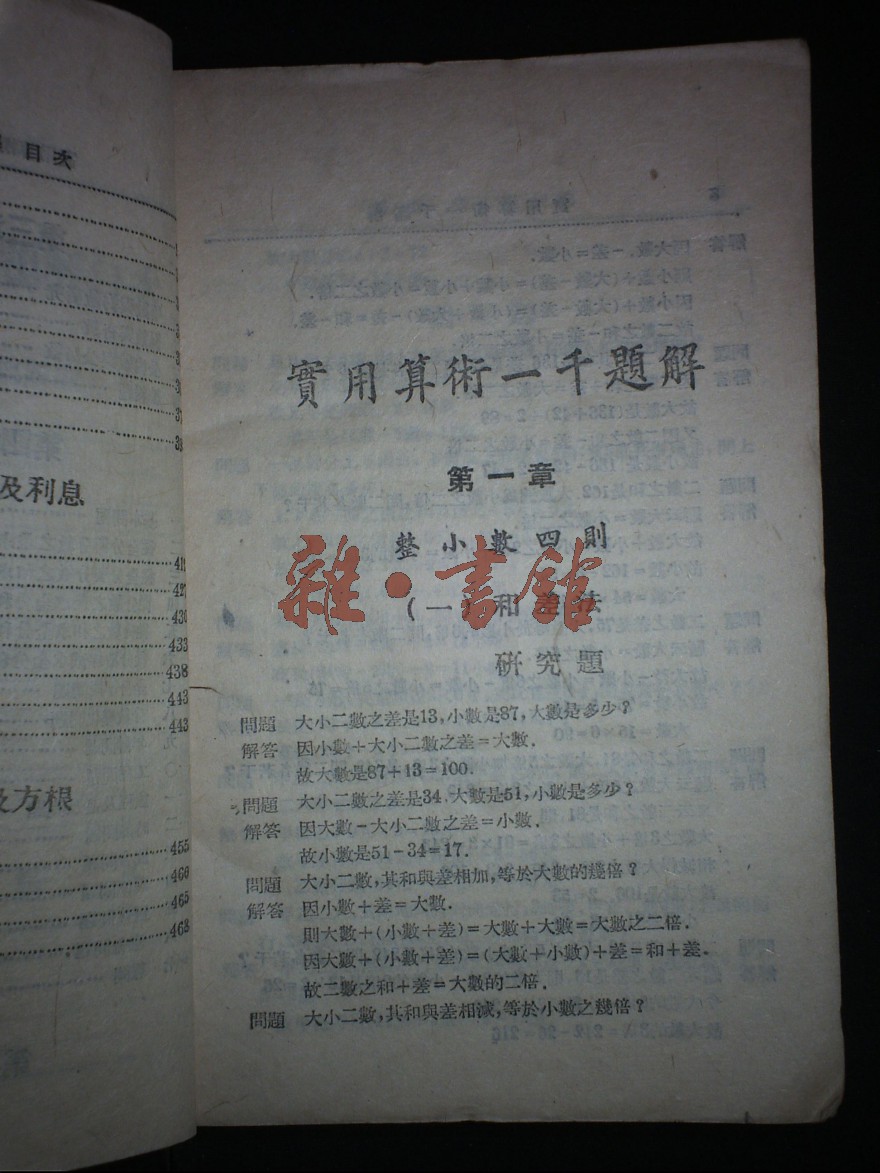 目次
及利息
419
427
430
433
438
443
443
及方根
455
460
465
468
實用算術一千題解
第一章
整小數四則
雜·書館
(一)和差法
研究題
問題 大小二數之差是13,小數是87,大數是多少?
解答 因小數+大小二數之差=大數.
故大數是87+13=100.
問題 大小二數之差是34,大數是51,小數是多少?
解答 因大數-大小二數之差=小數.
故小數是51-34=17.
問題 大小二數,其和與差相加,等於大數的幾倍?
解答 因小數+差=大數.
則大數+(小數+差)=大數+大數=大數之二倍.
因大數+(小數+差)=(大數+小數)+差=和+差.
故二數之和+差=大數的二倍.
問題 大小二數,其和與差相減,等於小數之幾倍?